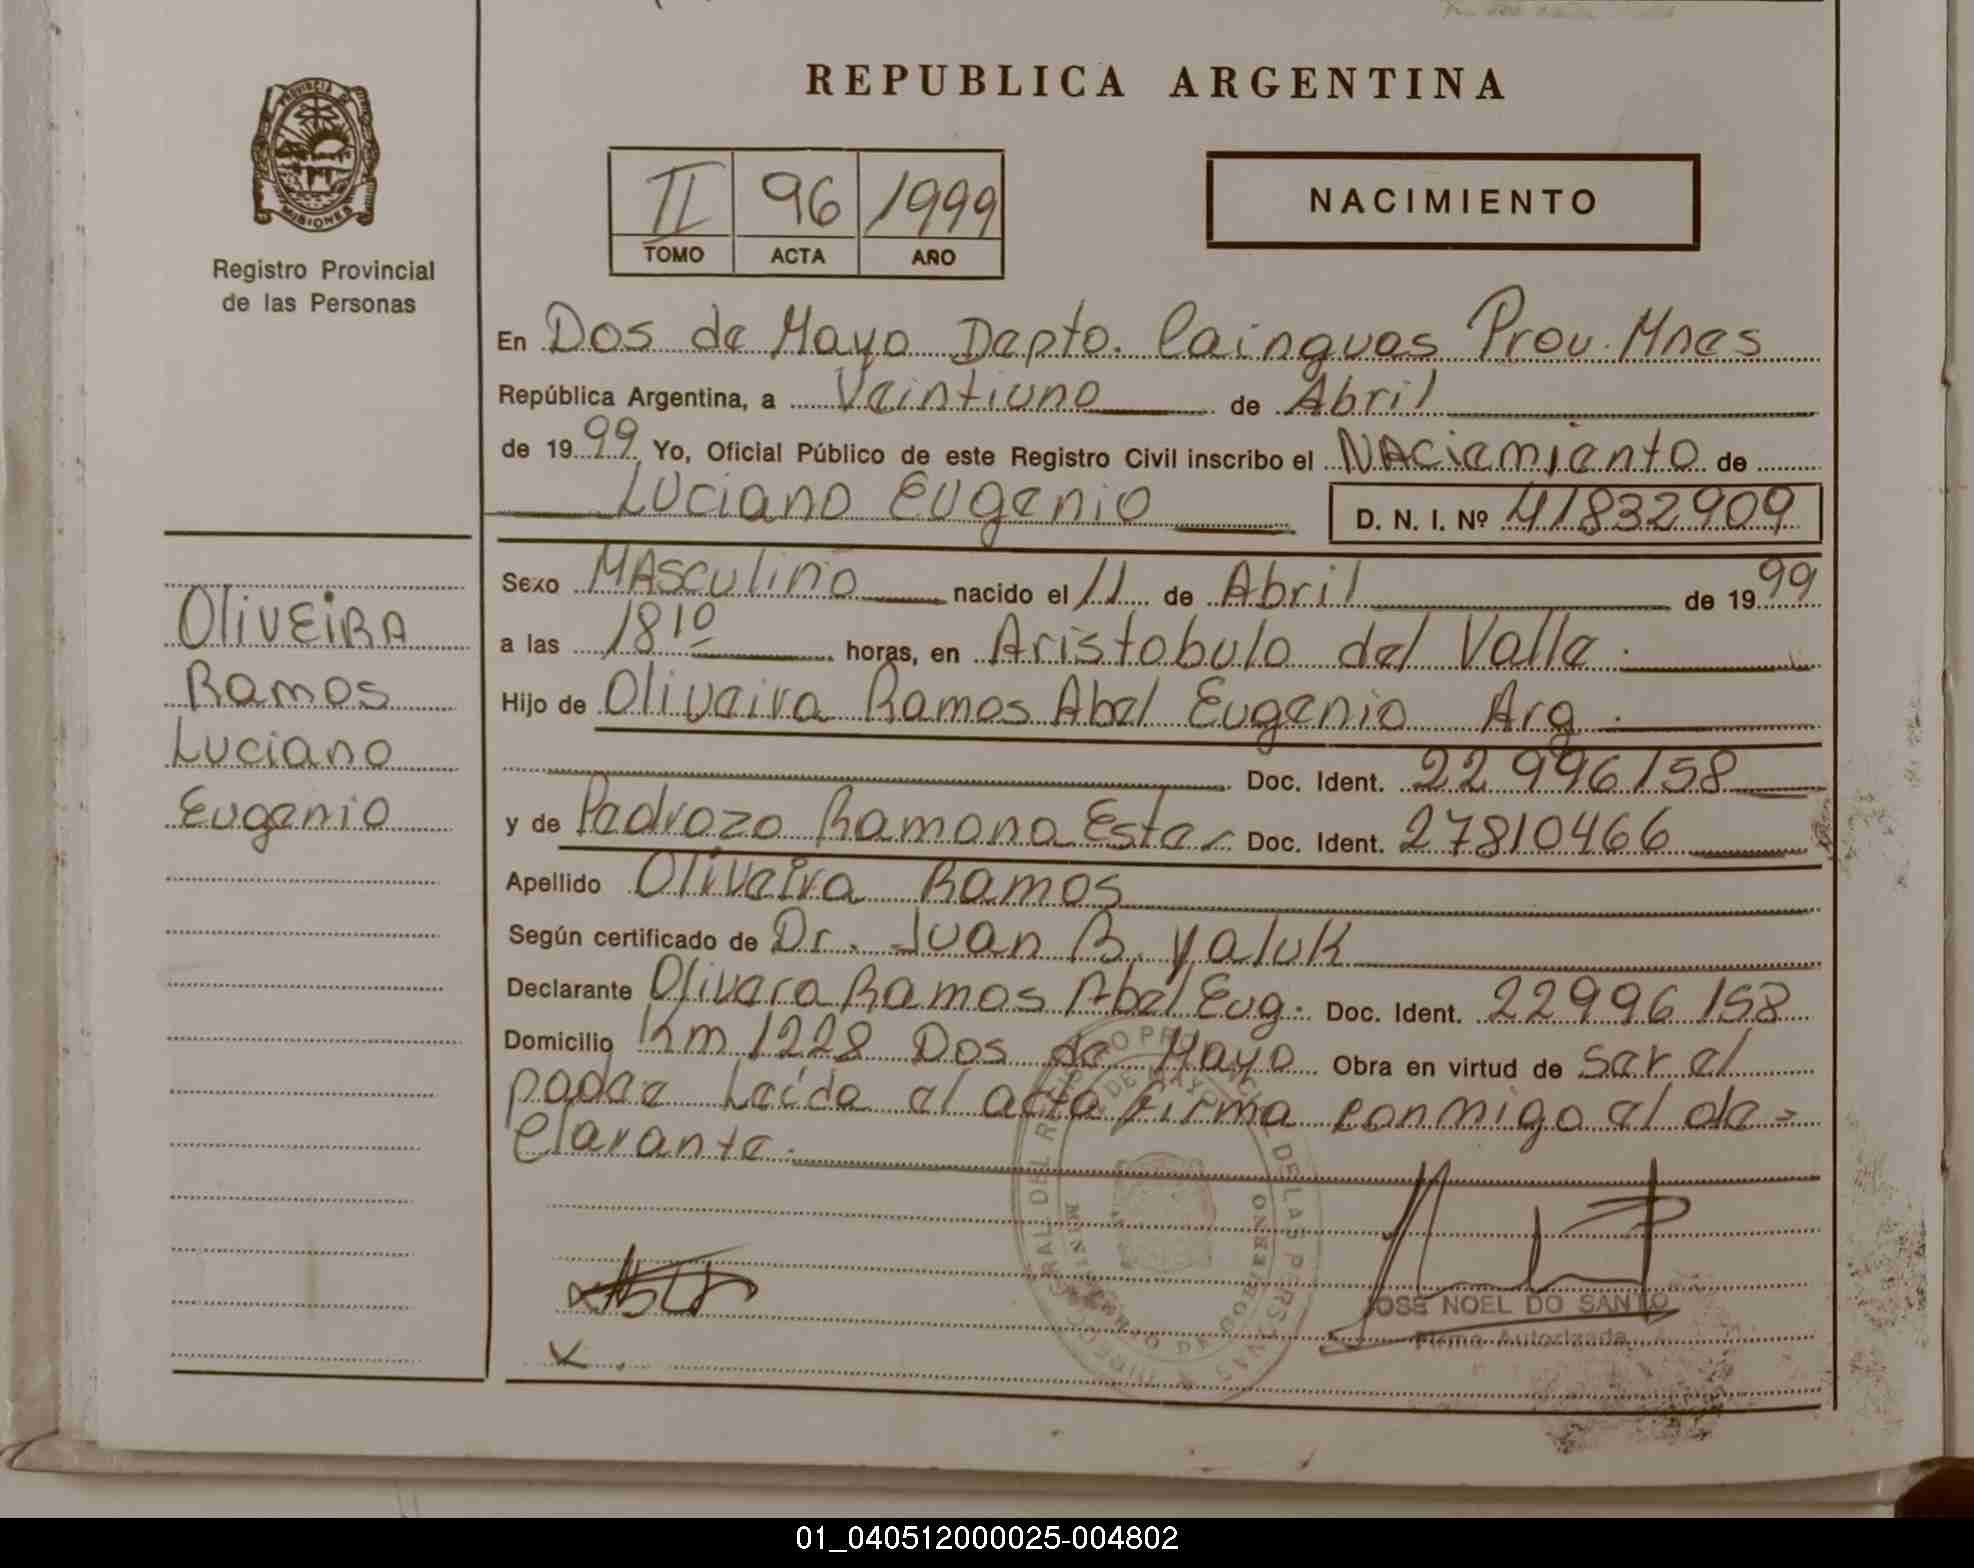 REPUBLICA ARGENTINA
PROVINCIA DE
MISIONES
Registro Provincial
de las Personas
II 96 1999
TOMO ACTA AÑO
NACIMIENTO
En Dos de Mayo Depto. Cainguas Prov. Mnes
República Argentina, a Veintiuno de Abril
de 1999 Yo, Oficial Público de este Registro Civil inscribo el NAciemiento de
Luciano Eugenio D. N. I. Nº 41832909
Sexo MAsculino nacido el 11 de Abril de 1999
a las 18 10 horas, en Aristobulo del Valle.
Hijo de Oliveira Ramos Abel Eugenio Arg.
Doc. Ident. 22996158
y de Pedrozo Ramona Ester Doc. Ident. 27810466
Apellido Oliveira Ramos
Según certificado de Dr. Juan B. Yaluk
Declarante Olivera Ramos Abel Eug. Doc. Ident. 22996158
Domicilio Km 1228 Dos de Mayo Obra en virtud de ser el
padre Leída el acta firma conmigo el de=
clarante.
OLIVEIRA
Ramos
Luciano
Eugenio
JOSE NOEL DO SANTO
Firma Autorizada
X.
01_040512000025-004802